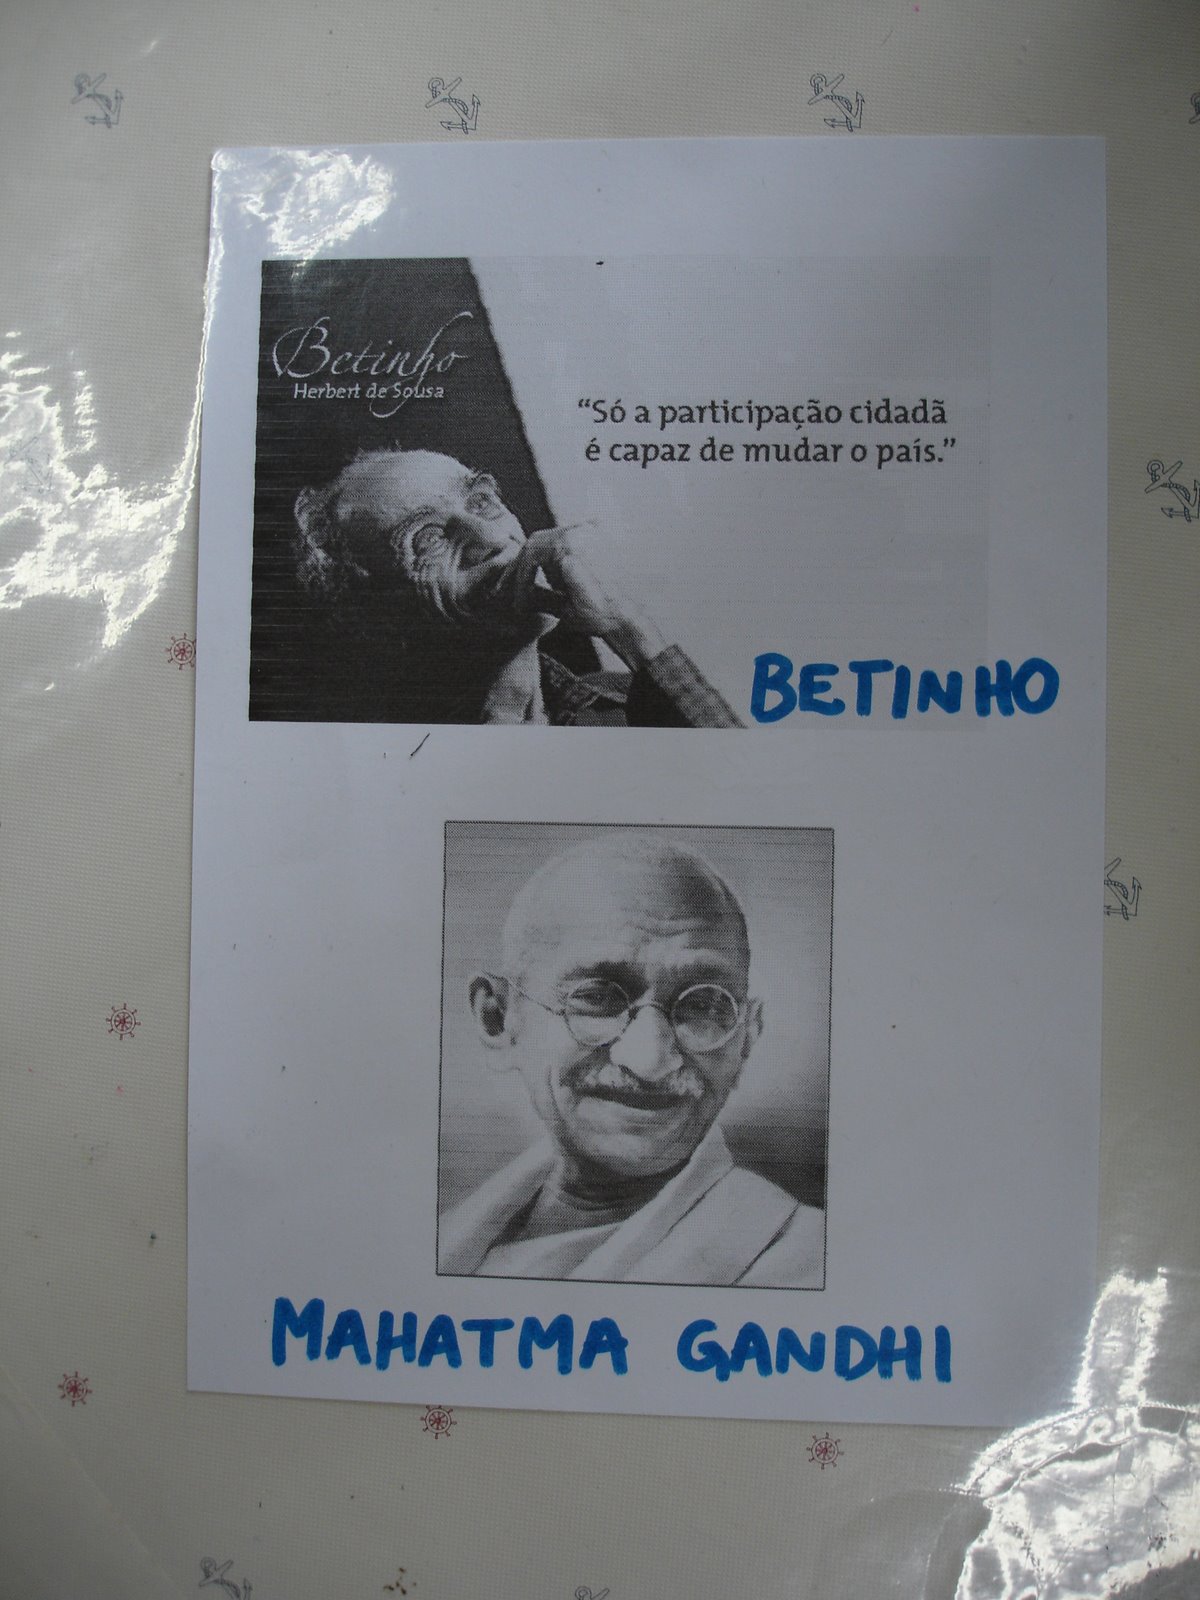 Betinho
Herbert de Sousa
“Só a participação cidadã
é capaz de mudar o país.”
BETINHO
MAHATMA GANDHI